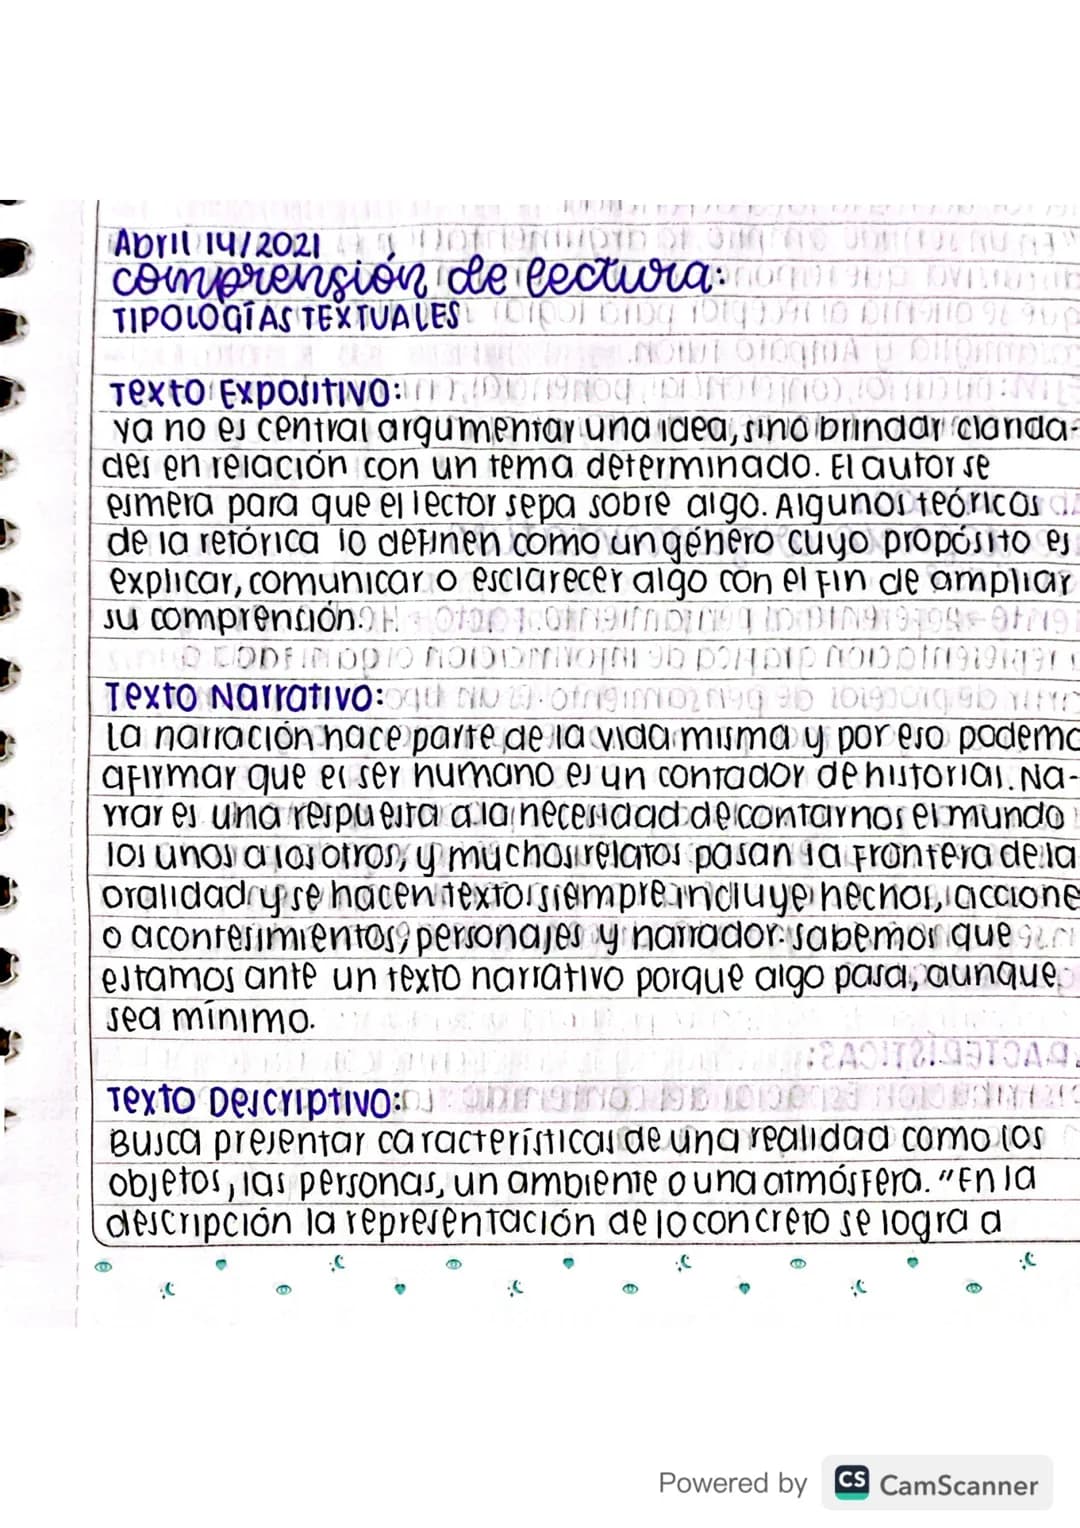 Abril 14/2021
comprensión de lectura:
TIPOLOGÍAS TEXTUALES
Texto Expositivo:
ya no es central argumentar una idea, sino brindar clarida-
des en relación con un tema determinado. El autor se
esmera para que el lector sepa sobre algo. Algunos teóricos
de la retórica lo definen como un género cuyo propósito es
explicar, comunicar o esclarecer algo con el fin de ampliar
su comprensión.
Texto Narrativo:
La narración hace parte de la vida misma y por eso podemo
afirmar que el ser humano es un contador de historias. Na-
rrar es una respuesta a la necesidad de contarnos el mundo
los unos a los otros, y muchos relatos pasan la frontera de la
oralidad y se hacen textos siempre incluye hechos, accione
o acontesimientos, personajes y narrador. Sabemos que
estamos ante un texto narrativo porque algo pasa, aunque
sea mínimo.
Texto Descriptivo:
Busca presentar características de una realidad como los
objetos, las personas, un ambiente o una atmósfera. "En la
descripción la representación de lo concreto se logra a
Powered by CS CamScanner